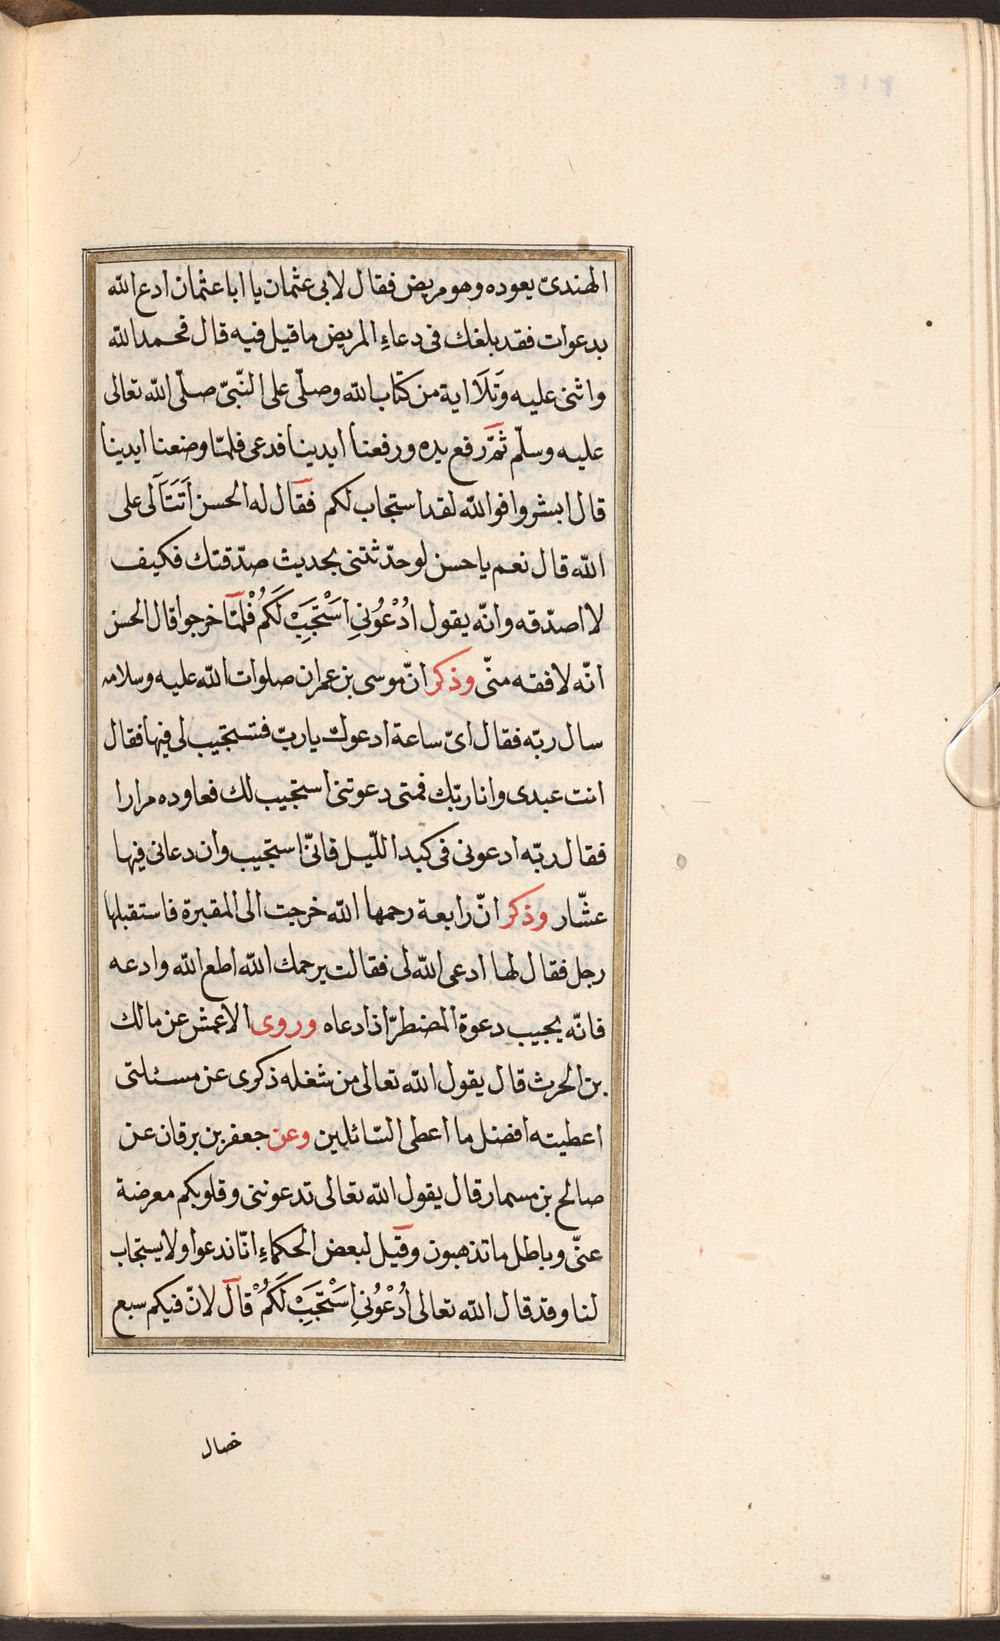 الهندىّ يعوده وهو مريض فقال لابى عثمان يا ابا عثمان ادع الله
بدعوات فقد بلغك فى دعاءِ المريض ما قيل فيه قال فحمد الله
واثنى عليه وَتَلَا اية من كتاب الله وصلّى على النّبىّ صلّى الله تعالى
عليه وسلّم ثمّ رفع يده ورفعنا ايدينا فدعى فلمّا وضعنا ايدينا
قال ابشروا فوالله لقد استجاب لكم فقال له الحسن أَتَتَآلى على
الله قال نعم يا حسن لو حدّثتنى بحديث صدّقتك فكيف
لا اصدّقه وانّه يقول اُدْعُونِى اَسْتَجِبْ لَكُمْ فلمّا خرجوا قال الحسن
انّه لافقه منّى وذكر انّ موسى بن عمران صلوات الله عليه وسلامه
سال ربّه فقال اىّ ساعة ادعوك يا ربّ فتستجيب لى فيها فقال
انت عبدى وانا ربّك فمتى دعوتنى استجيب لك فعاوده مرارا
فقال ربّه ادعونى فى كبد اللّيل فانّى استجيب وان دعانى فيها
عشّار وذكر انّ رابعة رحمها الله خرجت الى المقبرة فاستقبلها
رجل فقال لها ادعى الله لى فقالت يرحمك الله اطع الله وادعه
فانّه يجيب دعوة المضطرّ اذا دعاه وروى الاعمش عن مالك
بن الحرث قال يقول الله تعالى من شغله ذكرى عن مسئلتى
اعطيته افضل ما اعطى السّائلين وعن جعفر بن برقان عن
صالح بن مسمار قال يقول الله تعالى تدعوننى وقلوبكم معرضة
عنّى وباطل ما تذهبون وقيل لبعض الحكماءِ انّا ندعوا ولا يستجاب
لنا وقد قال الله تعالى اُدْعُونِى اَسْتَجِبْ لَكُمْ قال لانّ فيكم سبع
خصال